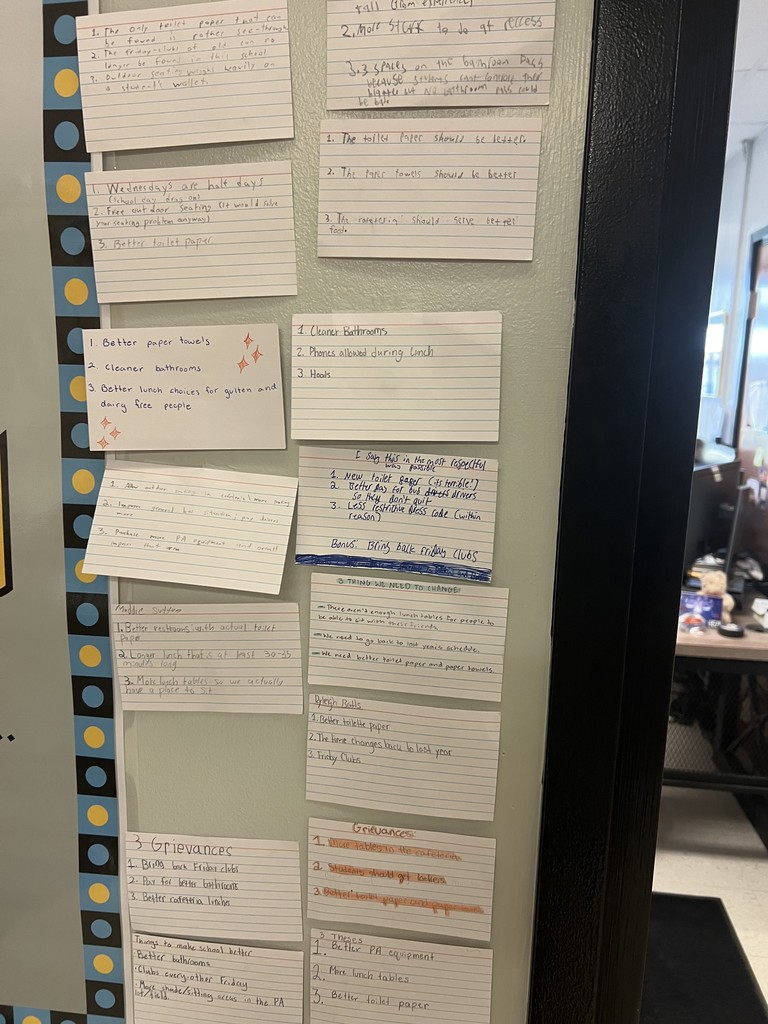 1. The only toilet paper that can
be found is rather see-through
2. The friday-clubs of old can no
longer be found in this school
3. Outdoor seating weighs heavily on
a student's wallet.
2. More stuff to do at recess
3. 3 spaces on the bathroom pass
because students cant
but no bathroom pass could
be bad.
1. Wednesdays are half days
(school day drag on)
2. Free outdoor seating (it would solve
your seating problem anyway)
3. Better toilet paper
1. The toilet paper should be better.
2. The paper towels should be better
3. The cafeteria should serve better
food.
1. Better paper towels
2. Cleaner bathrooms
3. Better lunch choices for gulten and
dairy free people
1. Cleaner Bathrooms
2. Phones allowed during lunch
3. Hoods
1. outdoor seating in cafeteria / more seating
2. Improve
more
3. Purchase more PA equipment and overall
improve that
I say this in the most respectful
way possible
1. New toilet paper (its terrible!)
2. Better pay for bus drivers
so they don't quit
3. Less restrictive dress code (within
reason)
Bonus: Bring back friday clubs
Maddie Sutton
1. Better restrooms with actual toilet
paper
2. Longer lunch that is at least 30-45
minutes long
3. More lunch tables so we actually
have a place to sit
3 THING WE NEED TO CHANGE
- There aren't enough lunch tables for people to
be able to sit with there friends
- We need to go back to last years schedule.
- We need better toilet paper and paper towels.
Ryleigh Batts
1. Better toilette paper
2. The time changes back to last year
3. Friday Clubs
3 Grievances
1. Bring back Friday clubs
2. Pay for better bathrooms
3. Better cafetria lunches
Grievances
1. More tables in the cafeteria
2. Students should get lockers
3. Better toilet paper and paper towels
Things to make school better
· Better bathrooms
· Clubs every-other Friday
· More shade/sitting areas in the PA
lot/field.
3 Theses
1. Better PA equipment
2. More lunch tables
3. Better toilet paper